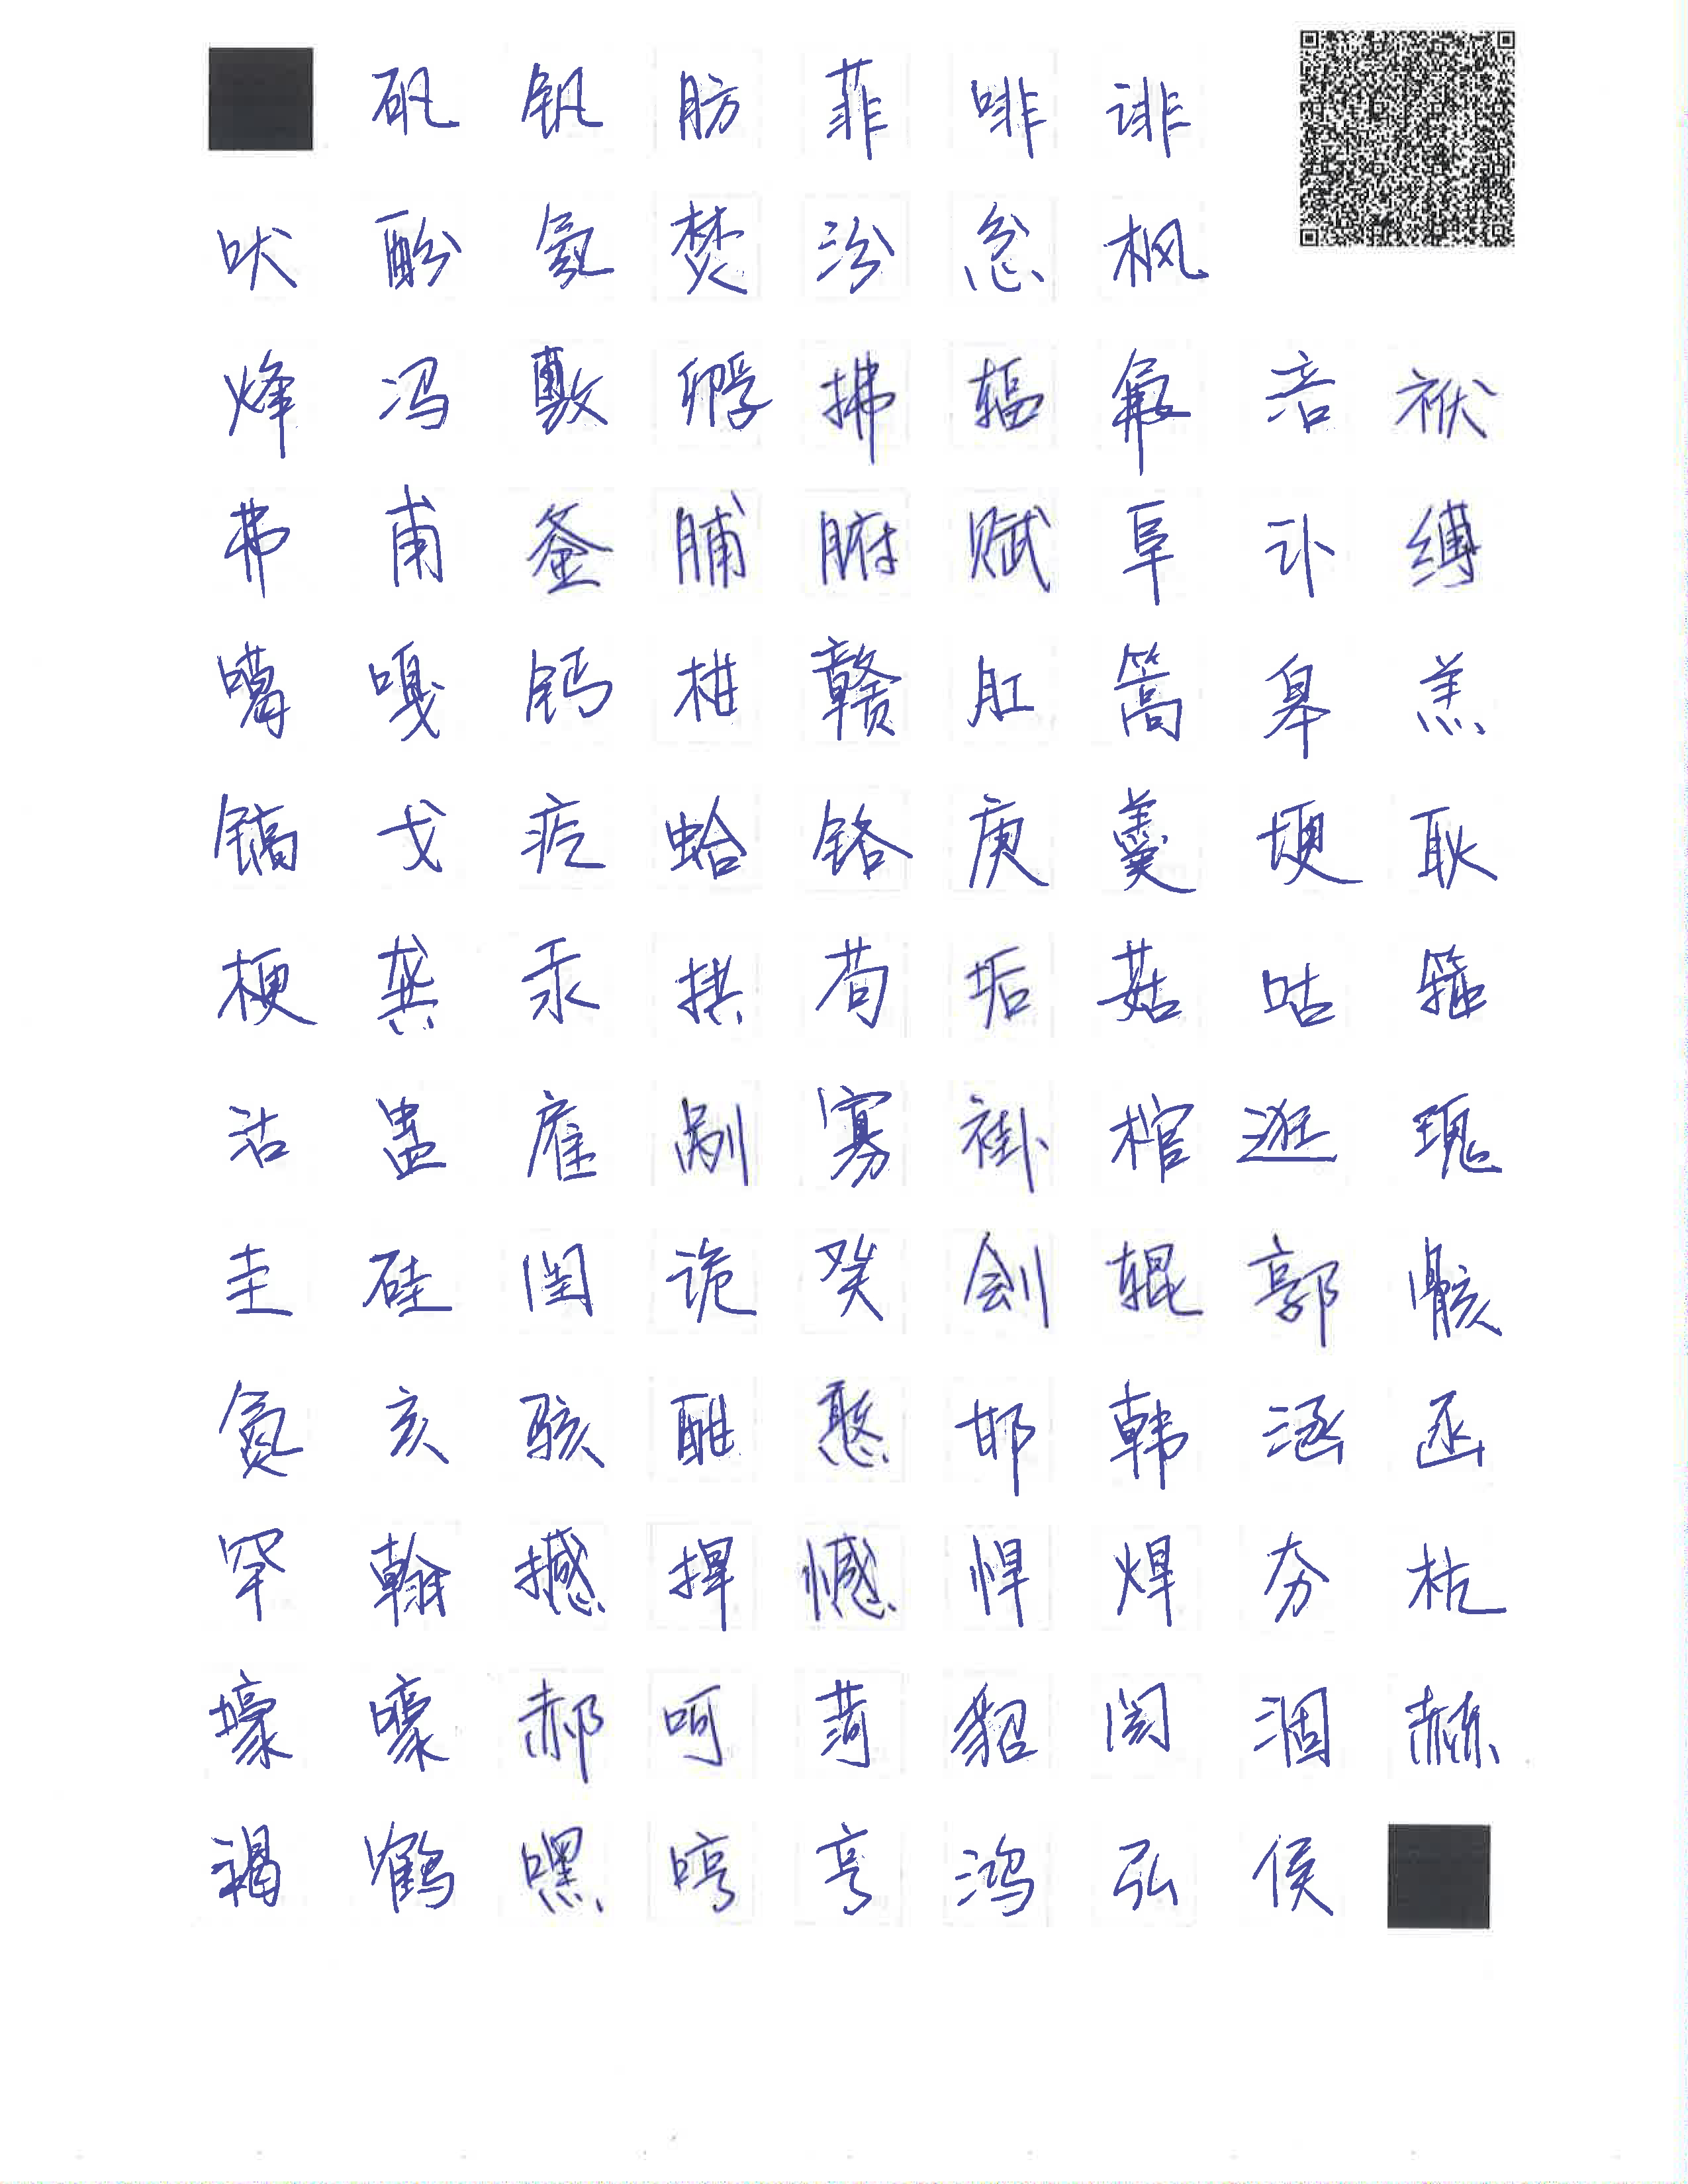 矾 钒 肪 菲 啡 诽
吠 酚 氛 焚 汾 忿 枫
烽 冯 敷 孵 拂 辐 氟 涪 袱
弗 甫 釜 脯 腑 赋 阜 讣 缚
噶 嘎 钙 柑 赣 肛 篙 皋 羔
镐 戈 疙 蛤 铬 庚 羹 埂 耿
梗 龚 汞 拱 苟 垢 菇 咕 箍
沽 蛊 雇 剐 寡 褂 棺 逛 瑰
圭 硅 闺 诡 癸 刽 辊 郭 骸
氦 亥 骇 酣 憨 邯 韩 涵 函
罕 翰 撼 捍 憾 悍 焊 夯 杭
壕 嚎 郝 呵 菏 貂 阂 涸 赫
褐 鹤 嘿 哼 亨 鸿 弘 侯